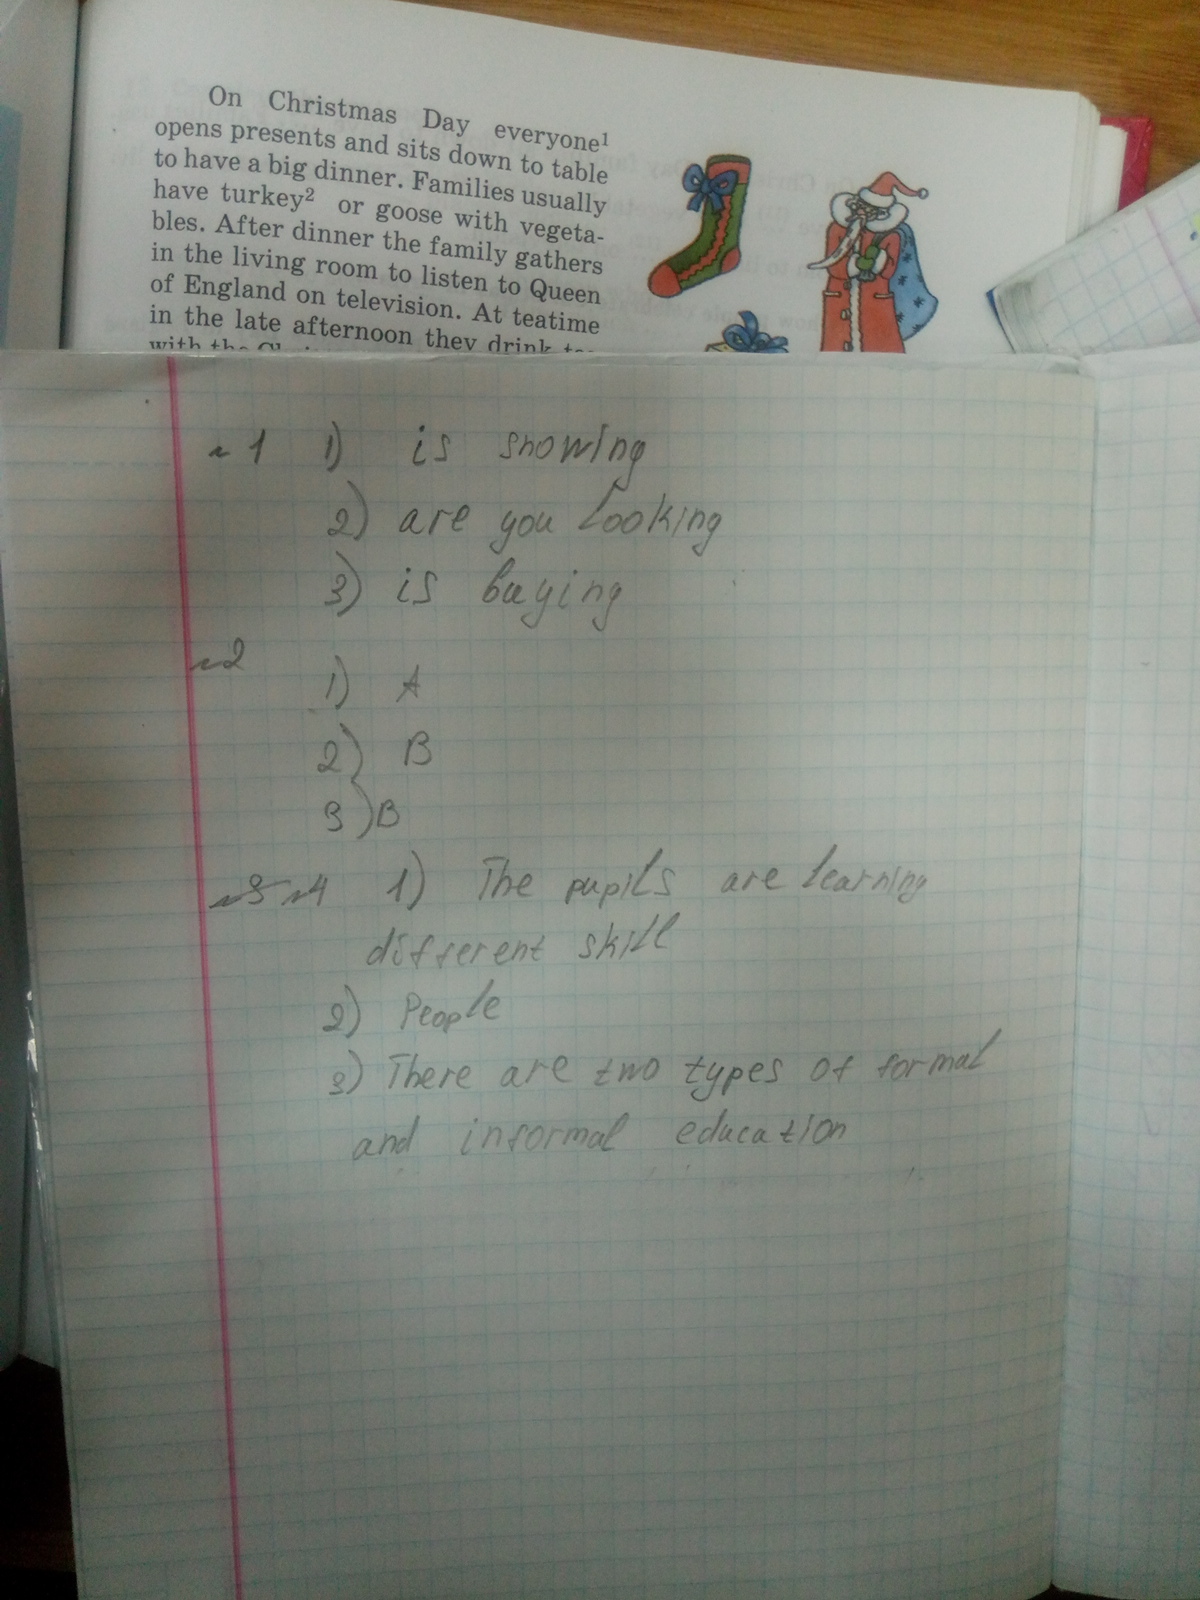 On Christmas Day everyone¹
opens presents and sits down to table
to have a big dinner. Families usually
have turkey² or goose with vegeta-
bles. After dinner the family gathers
in the living room to listen to Queen
of England on television. At teatime
in the late afternoon they drink
with the
№1 1) is snowing
2) are you looking
3) is buying
№2
1) A
2) B
3) B
№3 №4 1) The pupils are learning
different skill
2) People
3) There are two types of formal
and informal education